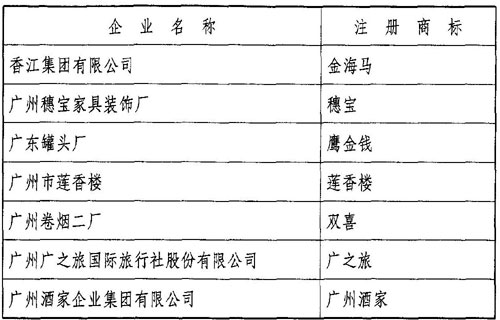 企业名称 注册商标
香江集团有限公司 金海马
广州穗宝家具装饰厂 穗宝
广东罐头厂 鹰金钱
广州市莲香楼 莲香楼
广州卷烟二厂 双喜
广州广之旅国际旅行社股份有限公司 广之旅
广州酒家企业集团有限公司 广州酒家